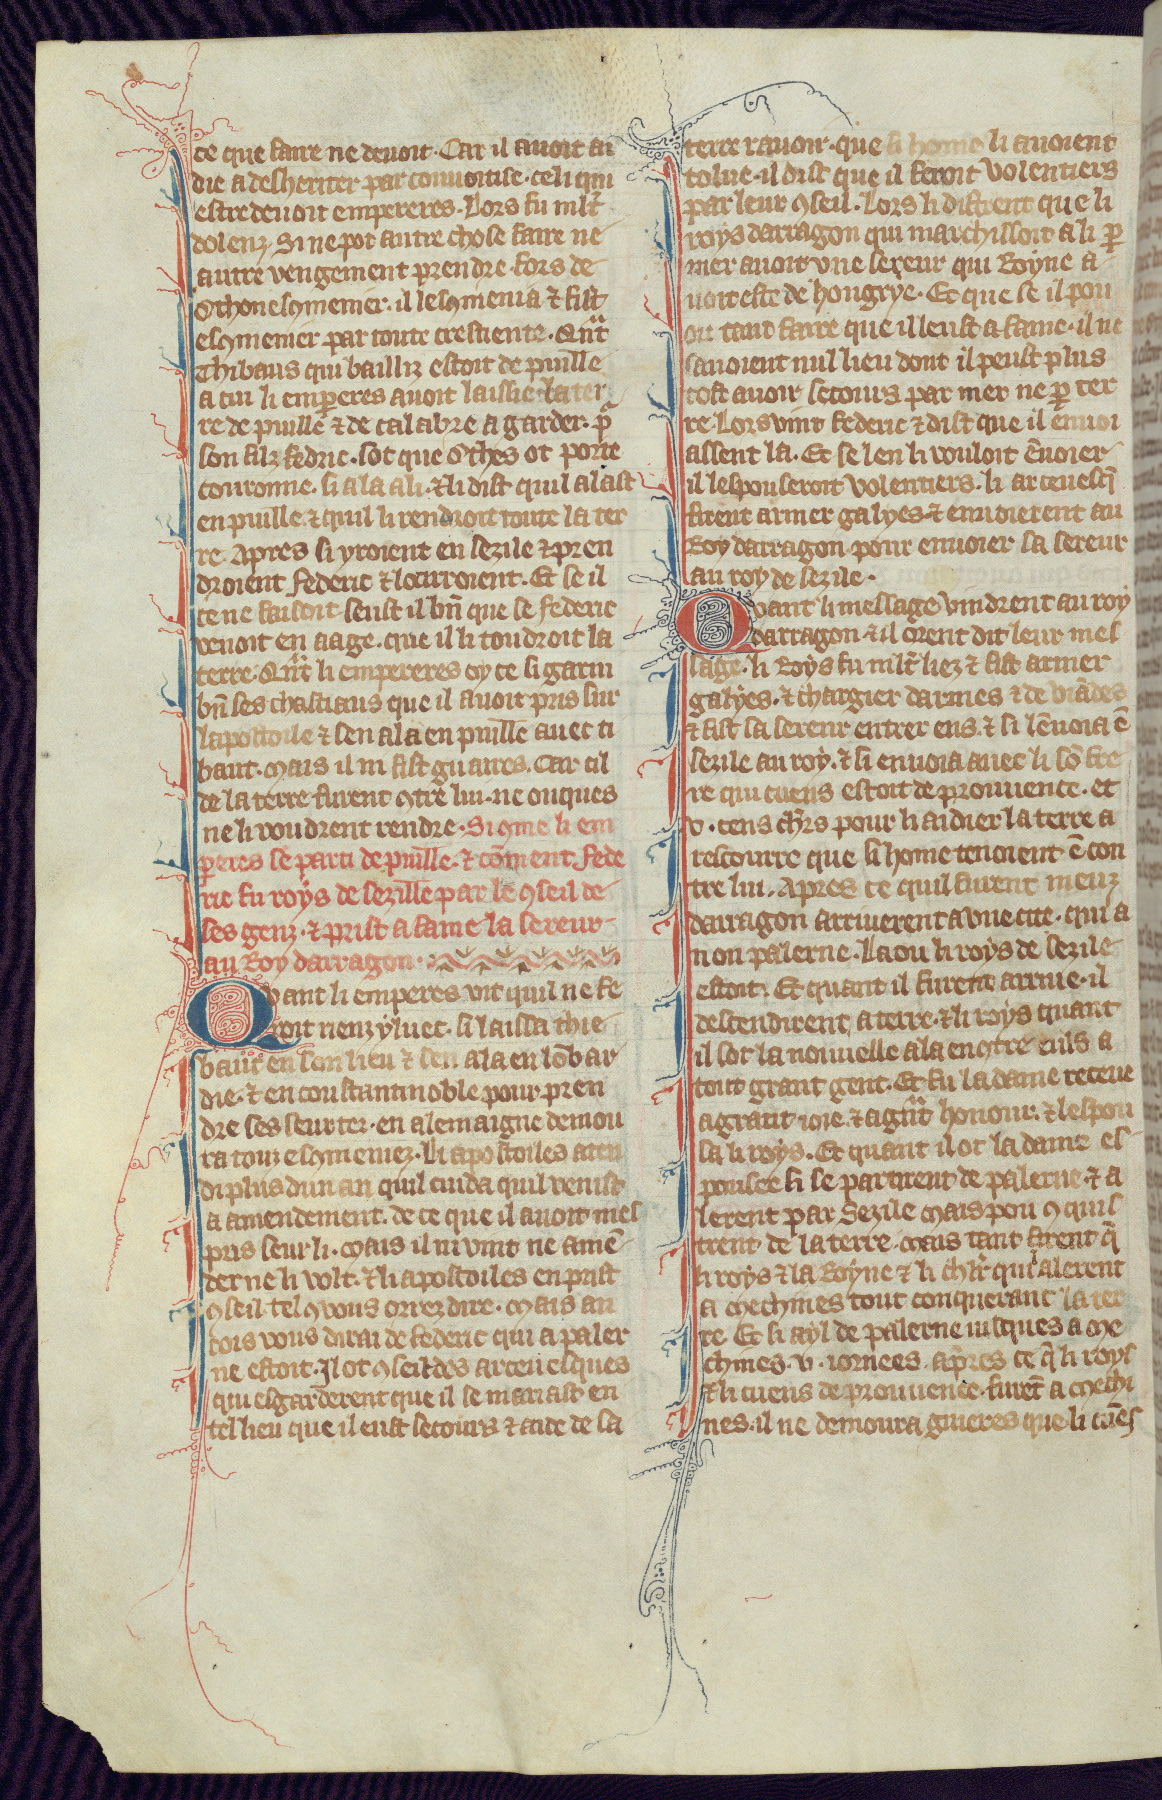 ce que faire ne devoit. Car il avoit ai
die a desheriter par convoitise. celi qui
estre devoit empereres. Lors fu mlt
dolenz. Si ne pot autre chose faire ne
autre vengement prendre. fors de
Othon eschmenier. il leschmenia ⁊ fist
eschmenier par toute crestiente. Qnt
Thibaus qui bailliz estoit de puille
a cui li empereres avoit laissie la ter
re de puille ⁊ de calabre a garder. p̄
son filz fedric. sot que othes ot porte
couronne. si ala a li. ⁊ li dist quil alast
en puille. ⁊ quil li rendroit toute la ter
re. Apres si yroient en sezile ⁊ pren
droient federic ⁊ locirroient. Et se il
ce ne faisoit seust il bn̄ que se federic
venoit en aage. que il li toudroit la
terre. Qnt li empereres oy ce si garni
bn̄ ses chastiaus que il avoit pris sur
lapostoile ⁊ sen ala en puille avec ti
baut. Mais il ni fist guaires. Car cil
de la terre furent ꝯtre lui. ne onques
ne li voudrent rendre. Si ꝯme li em
peres se parti de puille. ⁊ cōment fede
ric fu roys de sezille par le ꝯseil de
ses genz. ⁊ prist a fame la sereur
au Roy darragon.
Quant li emperes vit quil ne fe
roit nenz yluec. si laissa thie
baut en son lieu ⁊ sen ala en lōbar
die. ⁊ en coustantinoble pour pren
dre ses seurtez. en alemaigne demou
ra touz eschmeniez. li apostoiles aten
di plus dun an quil cuida quil venist
a amendement. de ce que il avoit mes
pris seur li. Mais il ni vint ne amē
der ne li volt. ⁊ li apostoiles en prist
ꝯseil tel ꝯ vous orrez dire. Mais an
cois vous dirai de federic qui a paler
ne estoit. Il ot ꝯseil des arcevesques
qui esgarderent que il se mariast en
tel lieu que il eust secours ⁊ aide de sa
terre ravoir. que si home li avoient
tolue. il dist que il feroit volentiers
par leur ꝯseil. Lors li distrent que li
roys darragon qui marchissoit a li p̄
mer avoit une sereur qui Royne a
voit este de hongrye. Et que se il pou
oit tant faire que il leust a fame. il ne
savoient nul lieu dont il peust plus
tost avoir secours par mer ne p̄ ter
re. Lors vint federic ⁊ dist que il envoi
assent la. Et se len li vouloit ēvoier
il lespouseroit volentiers. li arcevesq̄
firent armer galyes ⁊ envoierent au
Roy darragon pour envoier sa sereur
au roy de sezile.
Quant li message vindrent au roy
darragon ⁊ il orent dit leur mes
sage. li Roys fu mlt liez ⁊ fist armer
galyes. ⁊ chargier darmes ⁊ de viādes
⁊ fist sa sereur entrer ens. ⁊ si lēvoia ē
sezile au roy. ⁊ si envoia avec li sō fre
re qui cuens estoit de prouvence. et
v. cens chr̄s pour li aidier la terre a
rescourre que si home tenoient ēcon
tre lui. Apres ce quil furent meuz
darragon arriverent a une cite. qui a
non palerne. La ou li roys de sezile
estoit. Et quant il furent arrive. il
descendirent a terre. ⁊ li roys quant
il sot la nouvelle ala encꝯtre euls a
tout grant gent. Et fu la dame receue
a grant ioie. ⁊ a gnt honour. ⁊ lespou
sa li roys. Et quant il ot la dame es
pousee si se partirent de palerne. ⁊ a
lerent par Sezile mais pou ꝯquis
trent de la terre. Mais tant firent q̄
li roys ⁊ la Royne ⁊ li chr̄ qui alerent
a Mechines tout conquerant la ter
re. Et si ayl de palerne iusques a me
chines. v. iornees. apres ce q̄ li roys
⁊ li cuens de prouvence. furēt a mechi
nes. il ne demoura guieres que li cuēs